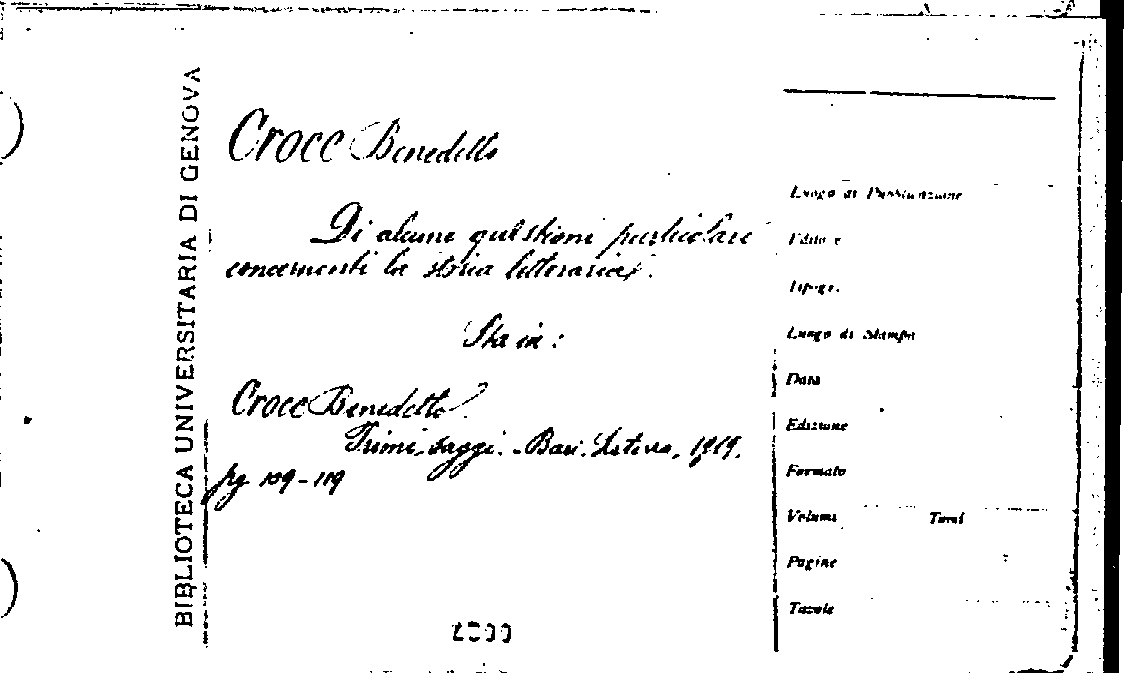 BIBLIOTECA UNIVERSITARIA DI GENOVA
Croce Benedetto
Di alcune questioni particolari
concernenti la storia letteraria.
Sta in:
Croce Benedetto.
Primi saggi. - Bari. Laterza, 1919.
pg 109-119
Luogo di Pubblicazione
Editore
Tipogr.
Luogo di Stampa
Data
Edizione
Formato
Volumi Tomi
Pagine
Tavole